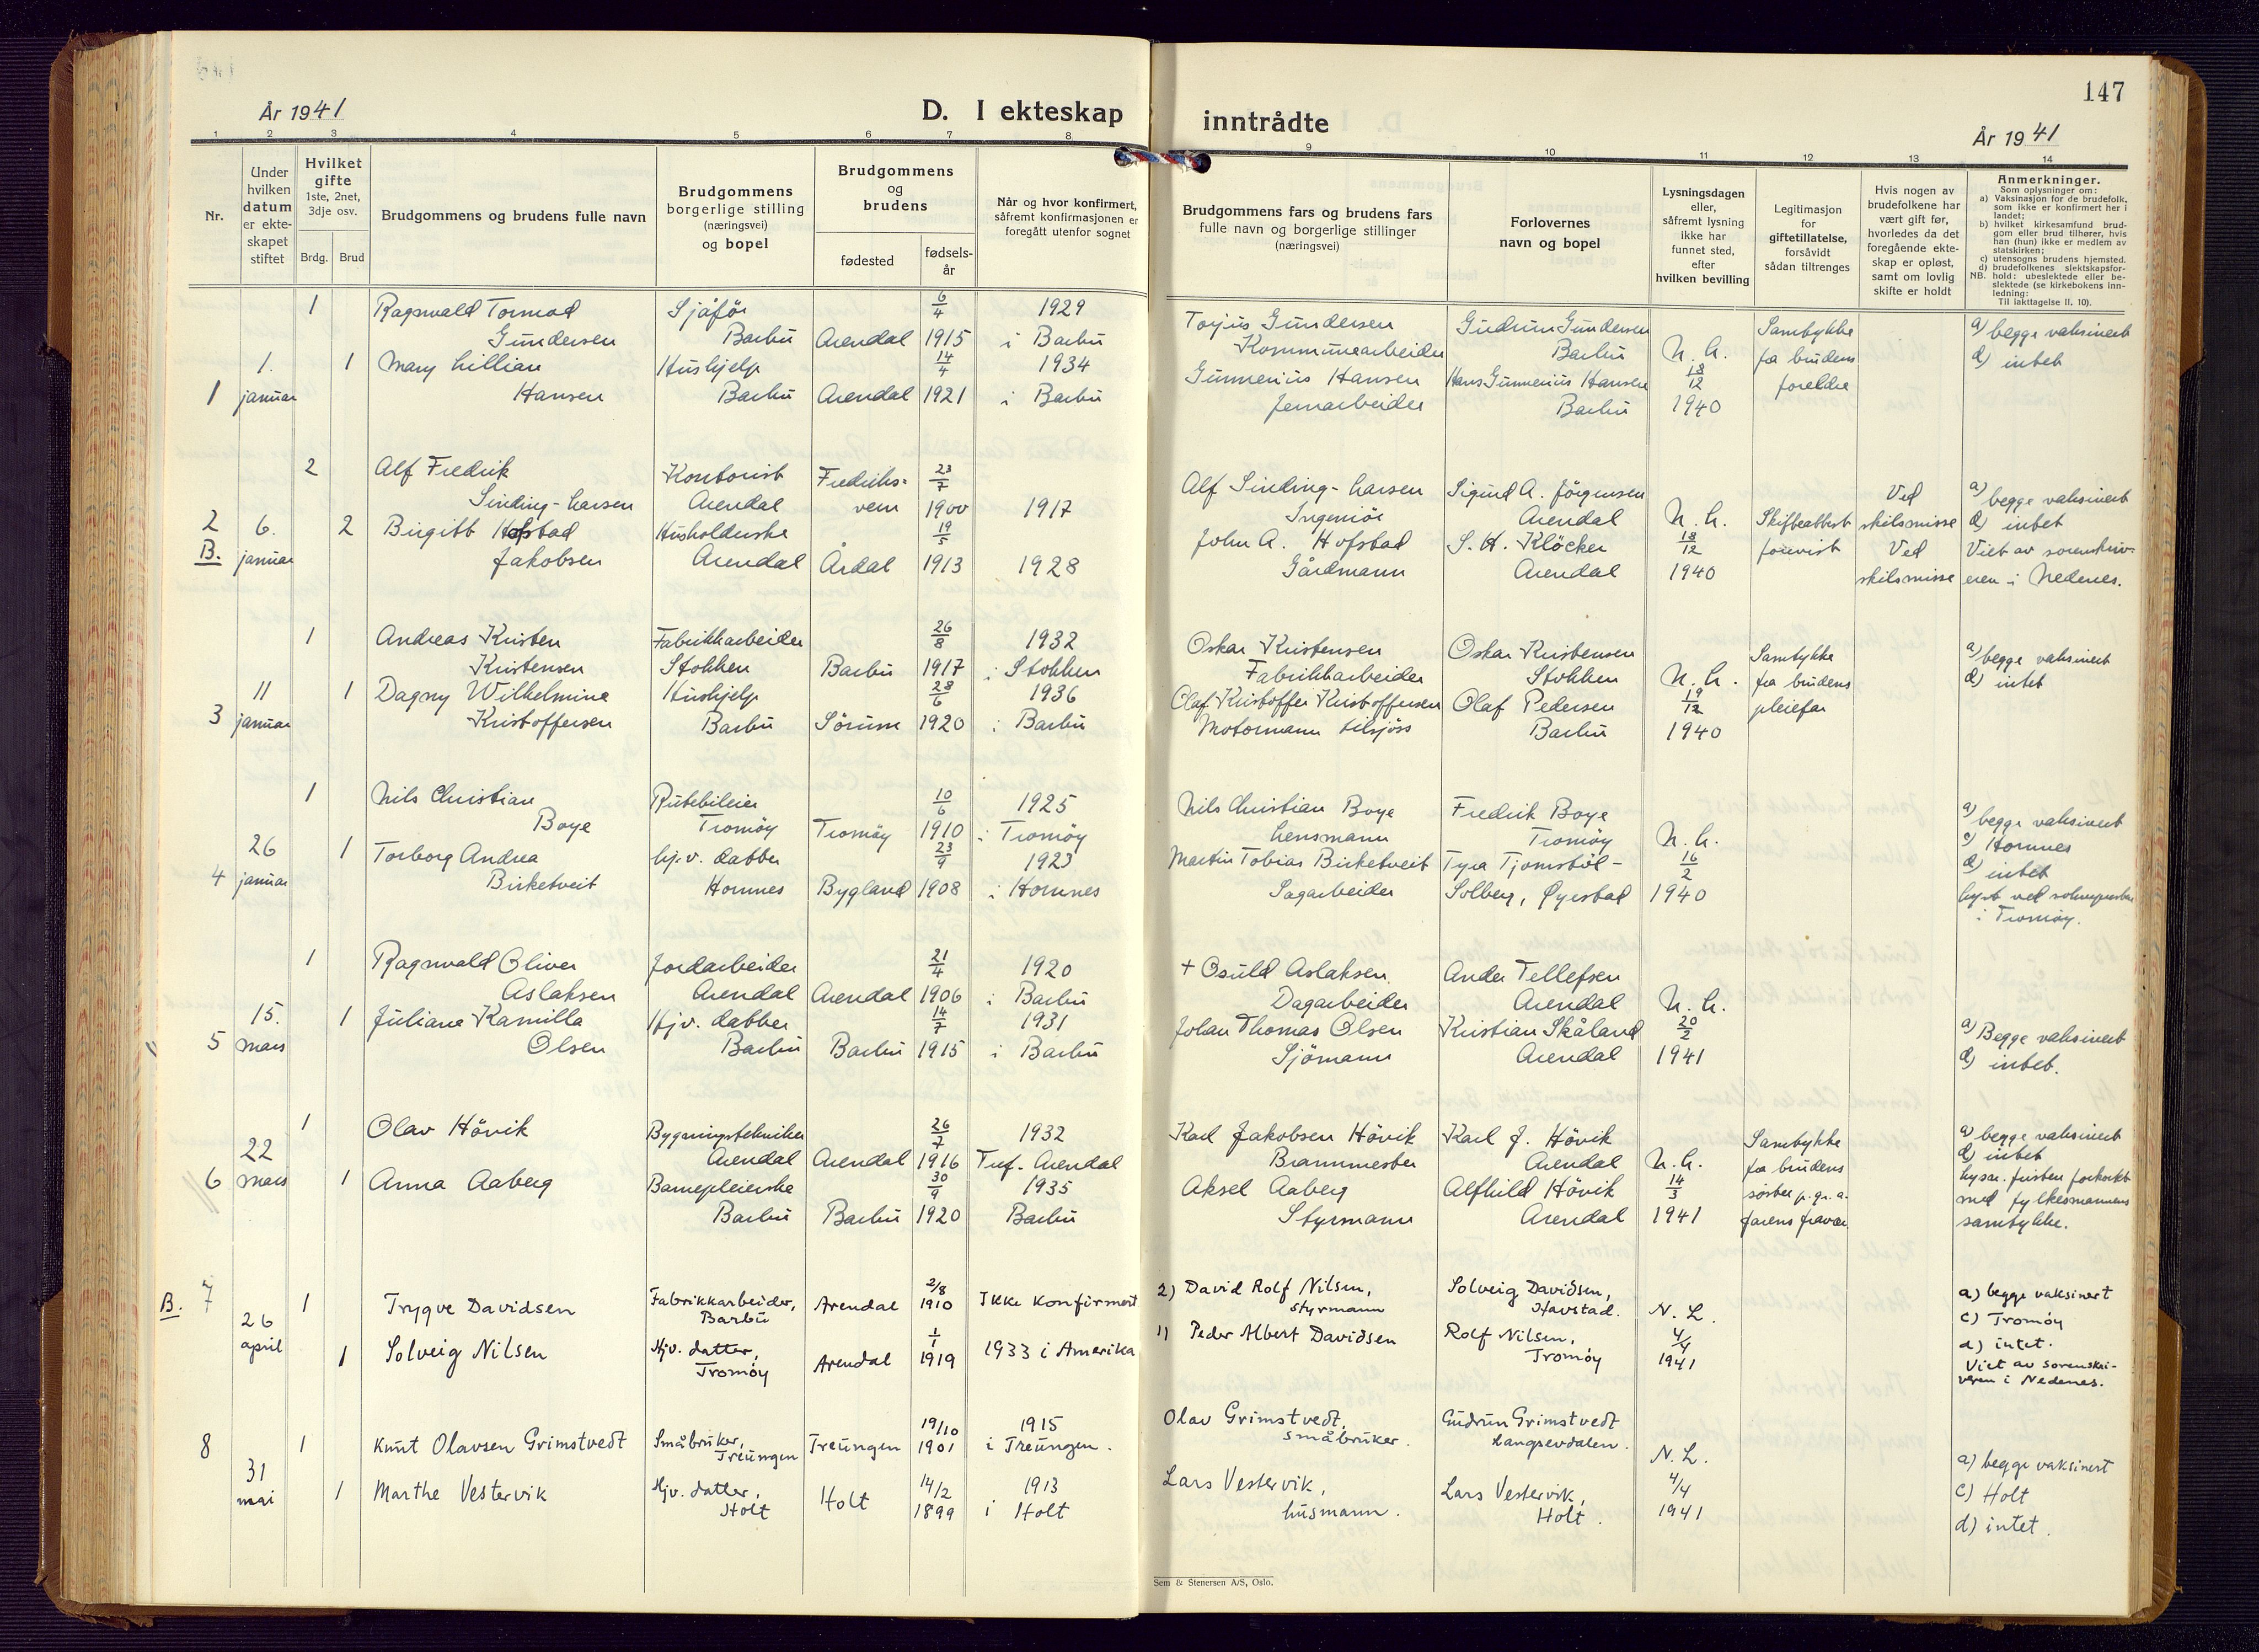 147
År 1941
D. I ekteskap
inntrådte
År 1941
1 2 3 4 5 6 7 8 9 10 11 12 13 14
Nr.
Under
hvilken
datum
er ekte-
skapet
stiftet
Hvilket
gifte
1ste, 2net,
3dje osv.
Brdg. Brud
Brudgommens og brudens fulle navn
Brudgommens
borgerlige stilling
(næringsvei)
og bopel
Brudgommens
og
brudens
fødested
fødsels-
år
Når og hvor konfirmert,
såfremt konfirmasjonen er
foregått utenfor sognet
Brudgommens fars og brudens fars
fulle navn og borgerlige stillinger
(næringsvei)
Forlovernes
navn og bopel
Lysningsdagen
eller,
såfremt lysning
ikke har
funnet sted,
efter
hvilken bevilling
Legitimasjon
for
giftetillatelse,
forsåvidt
sådan tiltrenges
Hvis nogen av
brudefolkene har
vært gift før,
hvorledes da det
foregående ekte-
skap er opløst,
samt om lovlig
skifte er holdt
Anmerkninger.
Som oplysninger om:
a) Vaksinasjon for de brudefolk,
som ikke er konfirmert her i
landet;
b) hvilket kirkesamfund brud-
gom eller brud tilhører, hvis
han (hun) ikke er medlem av
statskirken;
c) utensogns brudens hjemsted.
d) brudefolkenes slektskapsfor-
NB. hold: ubeslektede eller be-
slektede (se kirkebokens inn-
ledning:
Til iakttagelse II. 10).
1 Ragnvald Tormod Sjåfør 6/4 1929
Gundersen Barbu Arendal 1915 i Barbu
1. 1 Mary Lillian Hushjelp 14/4 1934
1 januar Hansen Barbu Arendal 1921 i Barbu
Torjus Gundersen Gudrun Gundersen Samtykke a) begge vaksinert
Kommunearbeider Barbu N. L. fra brudens d) intet
Gunnerius Hansen Hans Gunnerius Hansen 18/12 foreldre
Jernarbeider Barbu 1940
2 Alf Fredrik Kontorist Fredriks- 23/7
Sinding-Larsen Arendal vern 1900 1917
2 6. 2 Birgitt Hofstad Husholderske 19/5
B. januar Jakobsen Arendal Årdal 1913 1928
Alf Sinding-Larsen Sigurd A. Jörgensen Ved a) begge vaksinert
Ingeniör Arendal N. L. Skifteattest skilsmisse d) intet
John A. Hofstad S. H. Klöcker 18/12 forevist Ved Viet av sorenskriv-
Gårdmann Arendal 1940 skilsmisse eren i Nedenes.
1 Andreas Kristen Fabrikkarbeider 26/8 1932
Kristensen Stokken Barbu 1917 i Stokken
11 1 Dagny Wilhelmine Hushjelp 28/6 1936
3 januar Kristoffersen Barbu Sörum 1920 i Barbu
Oskar Kristensen Oskar Kristensen Samtykke a) begge vaksinert
Fabrikkarbeider Stokken N. L. fra brudens d) intet
Olaf Kristoffer Kristoffersen Olaf Pedersen 19/12 pleiefar
Motormann tilsjöss Barbu 1940
1 Nils Christian Rutebileier 10/6 1925
Boye Tromöy Tromöy 1910 i Tromöy
26 1 Torborg Andrea hj.v. datter 23/9 1923
4 januar Birketveit Hornnes Bygland 1908 i Hornnes
Nils Christian Boye Fredrik Boye a) begge vaksinert
Lensmann Tromöy N. L. c) Hornnes
Martin Tobias Birketveit Tyra Tjomstöl- 16/2 d) intet
Sagarbeider Solberg, Øyestad 1940 lyst ved soknepresten
i Tromöy.
1 Ragnvald Oliver Jordarbeider 21/4 1920
Aslaksen Arendal Arendal 1906 i Barbu
15. 1 Juliane Kamilla Hjv. datter 14/7 1931
5 mars Olsen Barbu Barbu 1915 i Barbu
+ Osuld Aslaksen Anders Tellefsen
Dagarbeider Arendal N. L.
Johan Thomas Olsen Kristian Skåland 20/2 a) Begge vaksinert
Sjömann Arendal 1941 d) intet.
1 Olav Hövik Bygningstekniker 26/7 1932
22 Arendal Arendal 1916 Tref. Arendal
6 mars 1 Anna Aaberg Barnepleierske 30/9 1935
Barbu Barbu 1920 Barbu
Karl Jakobsen Hövik Karl J. Hövik Samtykke a) begge vaksinert
Brannmester Arendal N. L. fra brudens d) intet
Aksel Aaberg Alfhild Hövik 14/3 söster p. gr. a. lysn. fristen forkortet
Styrmann Arendal 1941 farens fravær med fylkesmannens
samtykke.
B. 7 1 Trygve Davidsen Fabrikkarbeider, Arendal 2/8 1910 Ikke Konfirmert
26 Barbu
april 1 Solveig Nilsen Hjv. datter, Arendal 1/1 1919 1933 i Amerika
Tromöy
2) David Rolf Nilsen, Solveig Davidsen, a) begge vaksinert
styrmann Havstad. N. L. c) Tromöy
1) Peder Albert Davidsen Rolf Nilsen, 4/4 d) intet.
Tromöy 1941 Viet av sorenskri-
veren i Nedenes.
8 1 Knut Olavsen Grimstvedt Småbruker, Treungen 19/10 1901 1915
Treungen i Treungen.
31 1 Marthe Vestervik Hjv. datter, Holt 14/2 1913
mai Holt 1899 i Holt
Olav Grimstvedt, Gudrun Grimstvedt
småbruker. Langsevdalen. N. L. a) begge vaksinert
Lars Vestervik, Lars Vestervik, 4/4 c) Holt
husmann. Holt. 1941 d) intet.
Sem & Stenersen A/S, Oslo.